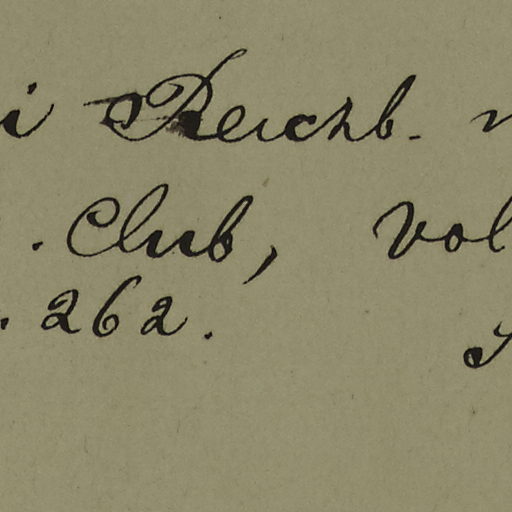 i Reichb.
. Club, vol
. 262.